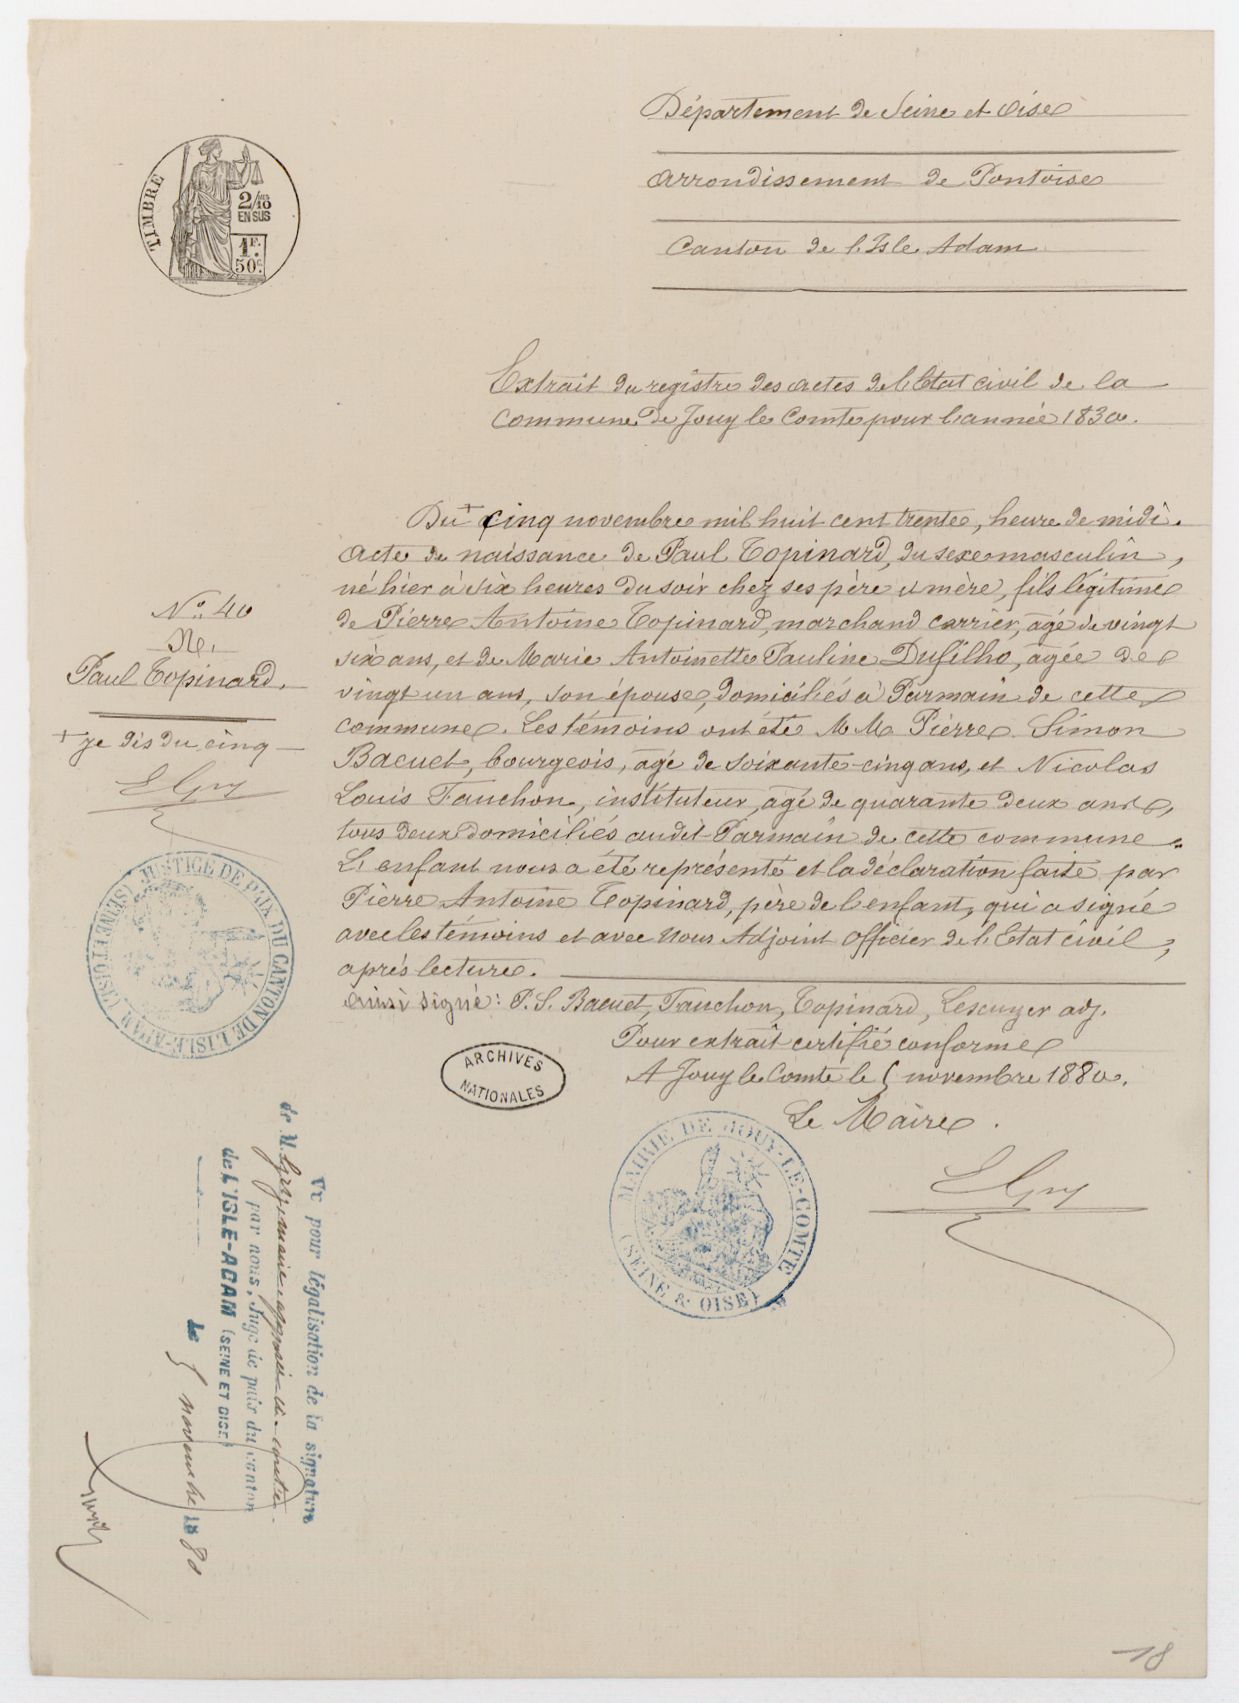 Département de Seine et Oise
Arrondissement de Pontoise
Canton de l'Isle Adam
TIMBRE
2/10
EN SUS
1F.
50c.
Extrait du registre des actes de l'Etat civil de la
commune de Jouy le Comte pour l'année 1830.
Du + cinq novembre mil huit cent trente, heure de midi.
Acte de naissance de Paul Topinard, du sexe masculin,
né hier à six heures du soir chez ses père et mère, fils légitime
de Pierre Antoine Topinard, marchand carrier, agé de vingt
six ans, et de Marie Antoinette Pauline Dufilho, agée de
vingt un ans, son épouse, domiciliés à Parmain de cette
commune. Les témoins ont été M M Pierre Simon
Bacuet, bourgeois, agé de soixante-cinq ans, et Nicolas
Louis Fauchon, instituteur, agé de quarante deux ans,
tous deux domiciliés audit Parmain de cette commune.
L'enfant nous a été représenté et la déclaration faite par
Pierre Antoine Topinard, père de l'enfant, qui a signé
avec les témoins et avec nous Adjoint officier de l'Etat civil,
après lecture.
ainsi signé: P. S. Bacuet, Fauchon, Topinard, Lescuyer adj.
Pour extrait certifié conforme
A Jouy le Comte le 5 novembre 1880.
Le Maire
No. 40
N.
Paul Topinard.
+ je dis du cinq
JUSTICE DE PAIX DU CANTON DE L'ISLE-ADAM (SEINE ET OISE)
ARCHIVES
NATIONALES
MAIRIE DE JOUY-LE-COMTE
(SEINE & OISE)
Vu pour légalisation de la signature
de M.
par nous, Juge de paix du canton
de L'ISLE-ADAM (SEINE ET OISE)
le 5 novembre 1880
18